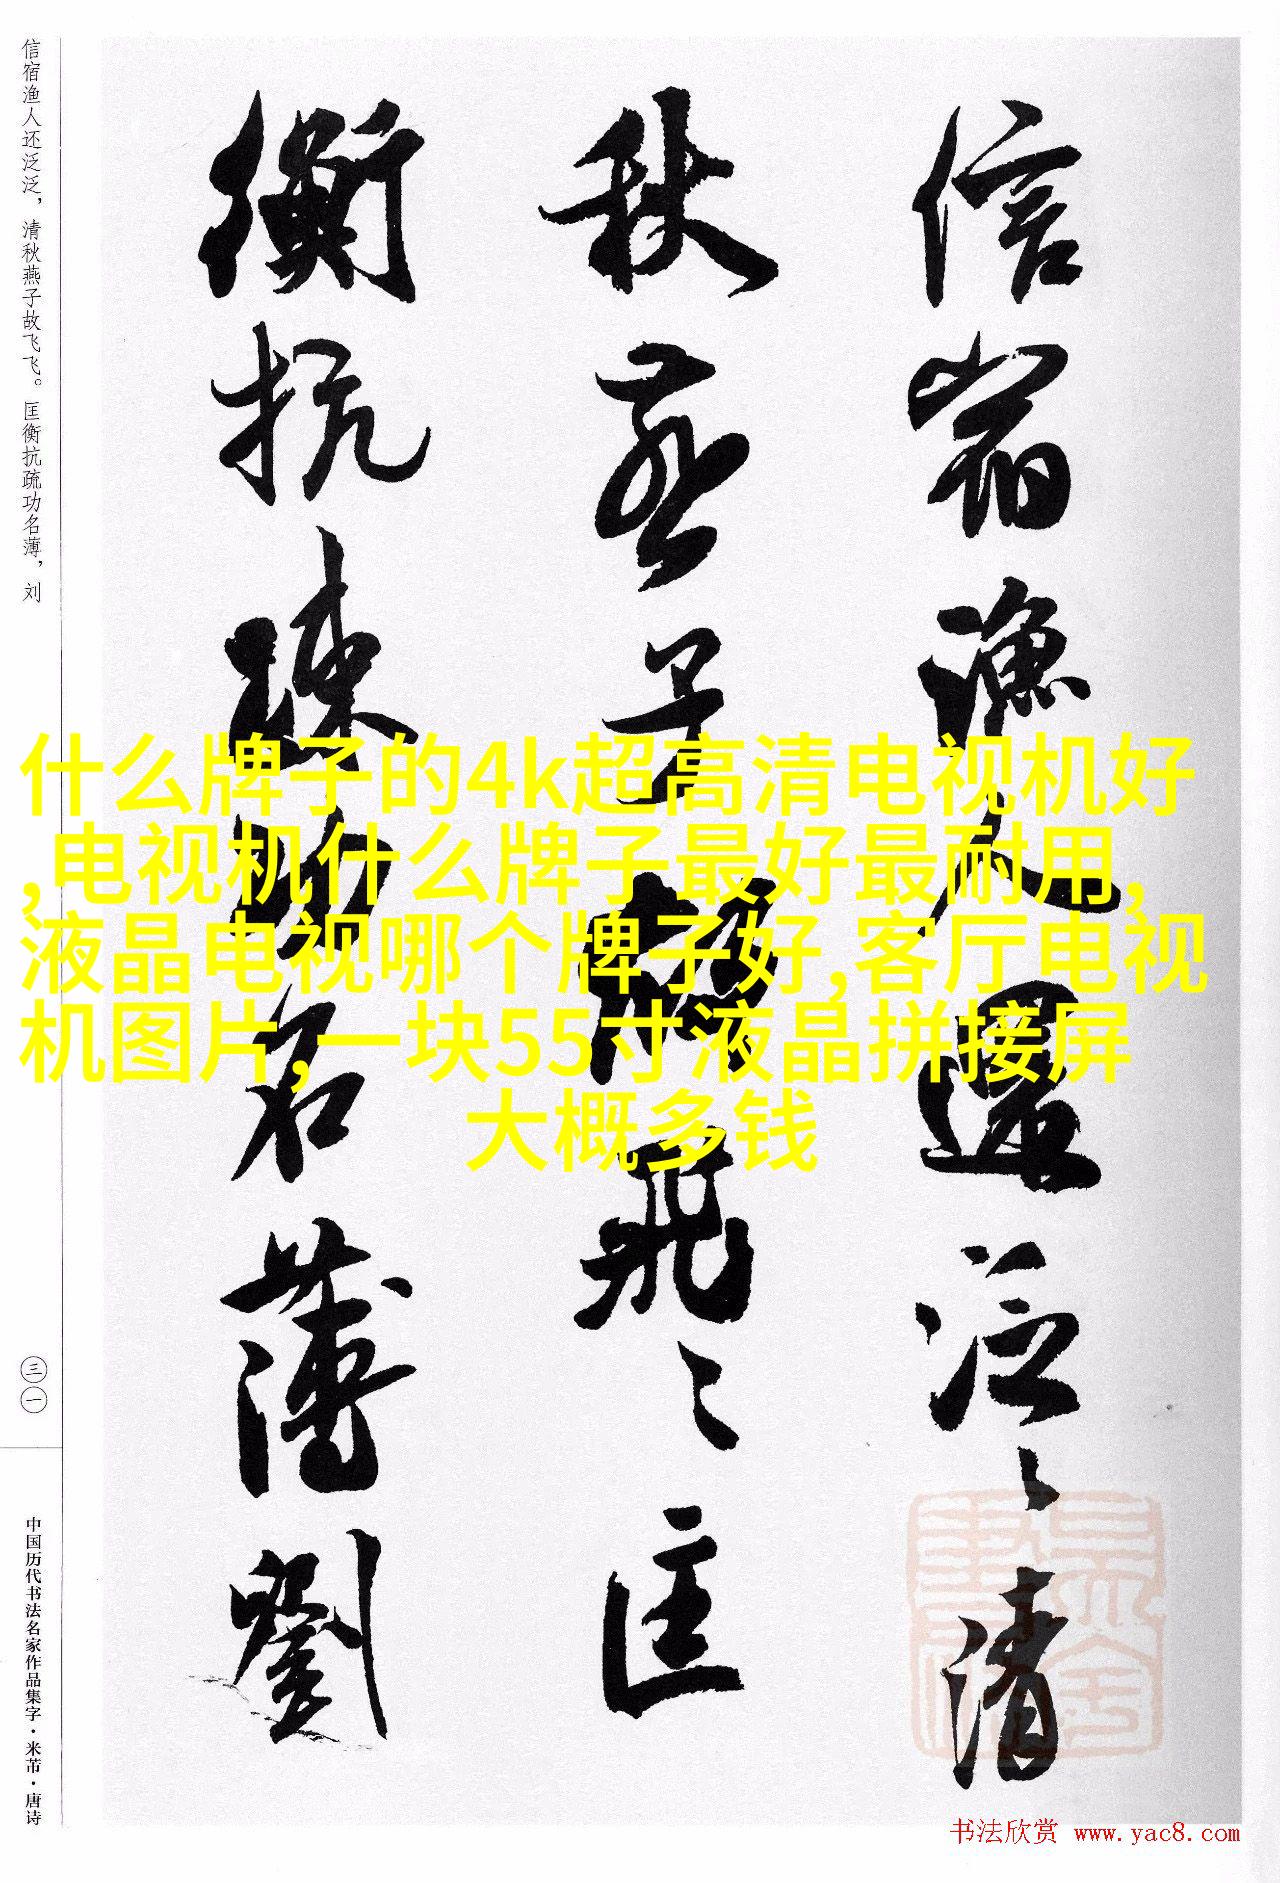 信宿渔人还泛泛，清秋燕子故飞飞。匡衡抗疏功名薄，刘
信宿漁人還泛〻清
秋燕子故飛〻匡
衡抗疎功名薄劉
什么牌子的4k超高清电视机好
,电视机什么牌子最好最耐用,
液晶电视哪个牌子好,客厅电视
机图片,一块55寸液晶拼接屏
大概多钱
三一
中国历代书法名家作品集字·米芾·唐诗
书法欣赏 www.yac8.com